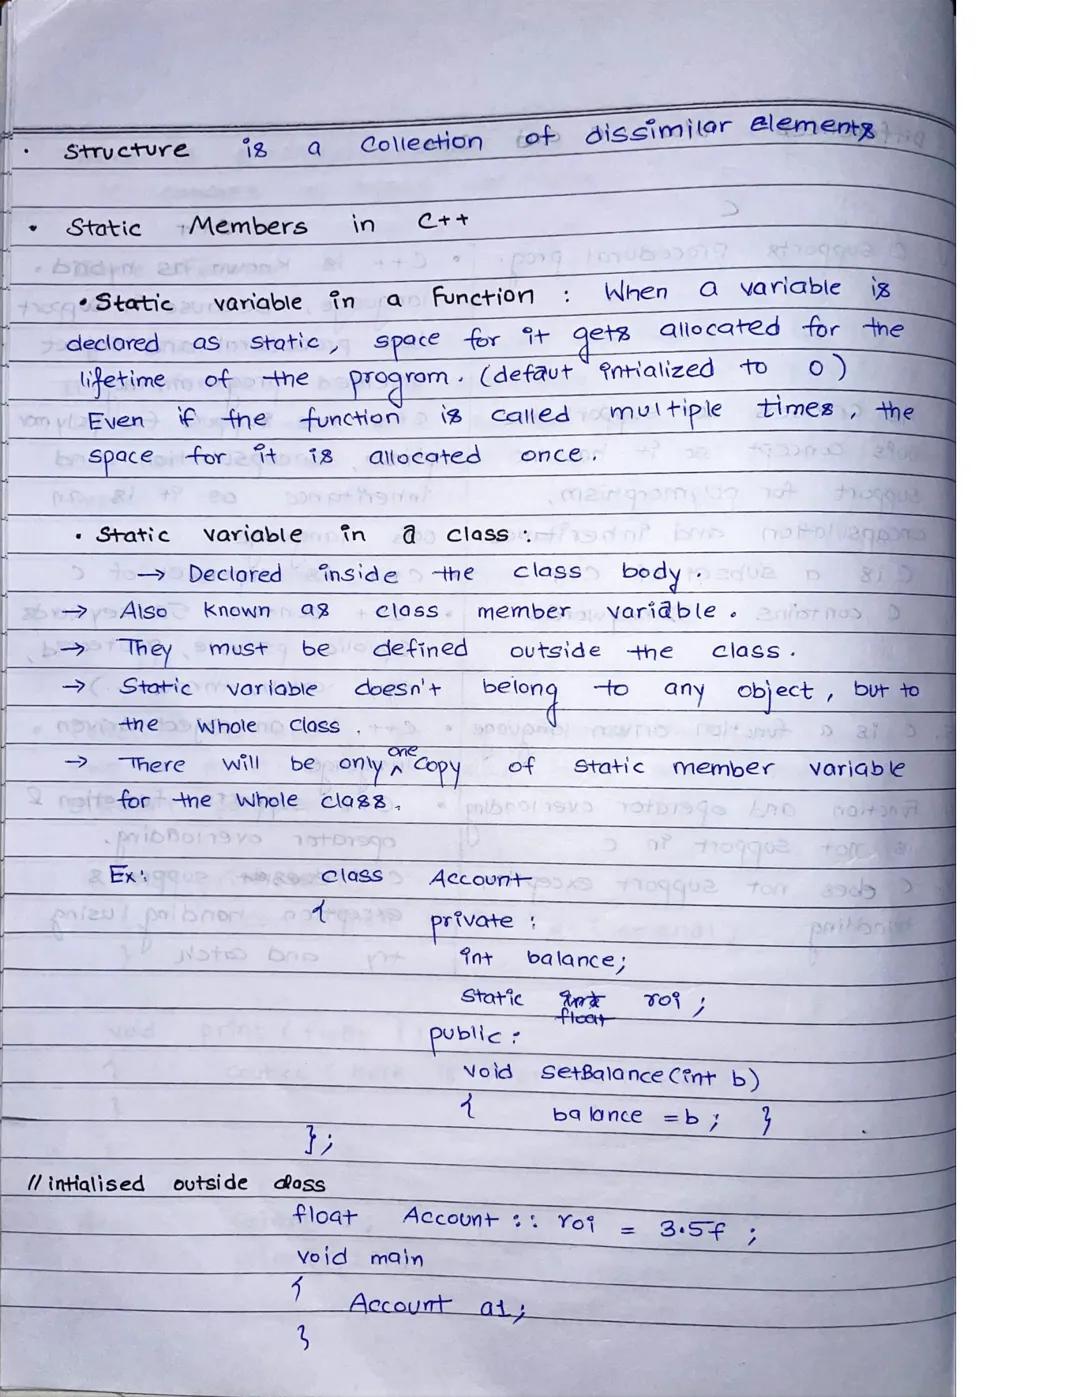 • Structure is a Collection of dissimilar elements
• Static Members in C++
• Static variable in a Function : When a variable is
declared as static, space for it gets allocated for the
lifetime of the program. (defaut intialized to 0)
Even if the function is called multiple times, the
space for it is allocated once.
• Static variable in a class :
→ Declared inside the class body.
→ Also known as class member variable.
→ They must be defined outside the class.
→ Static variable doesn't belong to any object, but to
the whole class.
→ There will be only one copy of static member variable
for the whole class.
Ex: class Account
{ private :
int balance;
static int float roi ;
public :
void setBalance(int b)
{ balance = b ; }
};
// intialised outside class
float Account :: roi = 3.5f ;
void main
{
Account a1;
}